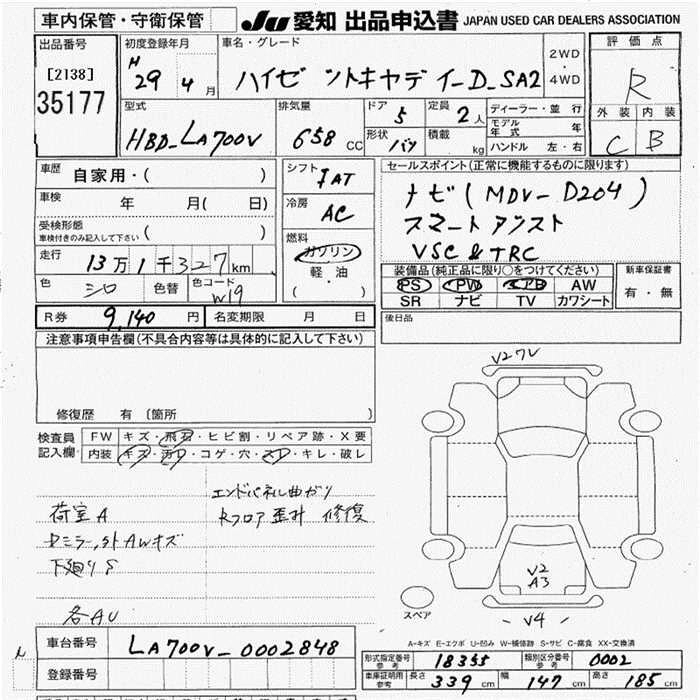 車内保管・守衛保管
JU 愛知 出品申込書 JAPAN USED CAR DEALERS ASSOCIATION
出品番号
[2138]
35177
初度登録年月
H
29 4 月
車名・グレード
ハイゼットキャデイ-D_SA2
2WD
・
4WD
評価点
R
外装 内装
C B
型式
HBD_LA700V
排気量
658 CC
ドア
5
形状
バン
定員
2 人
積載
kg
ディーラー・並行
モデル
年式 年
ハンドル 左・右
車歴 自家用・( )
車検 年 月( 日)
受検形態
車検付きのみ記入して下さい ( )
走行 13万1千327km
色 シロ 色替 色コード W19
シフト
FAT
冷房
AC
燃料
ガソリン
軽・油
( )
セールスポイント(正常に機能するものに限ります)
ナビ(MDV-D204)
スマートアシスト
VSC & TRC
装備品(純正品に限り○をつけてください)
PS PW エアB AW
SR ナビ TV カワシート
新車保証書
有・無
後日品
R券 9,140 円 名変期限 月 日
注意事項申告欄(不具合内容等は具体的に記入して下さい)
修復歴 有 〔箇所 〕
検査員
記入欄
FW キズ・飛石・ヒビ割・リペア跡・X要
内装 キズ・汚レ・コゲ・穴・スレ・キレ・破レ
荷室A
Dミラー,外AWキズ
下廻りS
各AU
エンドパネル曲がり
Rフロア歪み 修復
V27V
V2
A3
V4
スペア
A-キズ E-エクボ U-凹み W-補修跡 S-サビ C-腐食 XX-交換済
車台番号 LA700V_0002848
登録番号
形式指定番号
参考 18355
類別区分番号
参考 0002
車庫証明用
参考
長さ 339 cm
幅 147 cm
高さ 185 cm